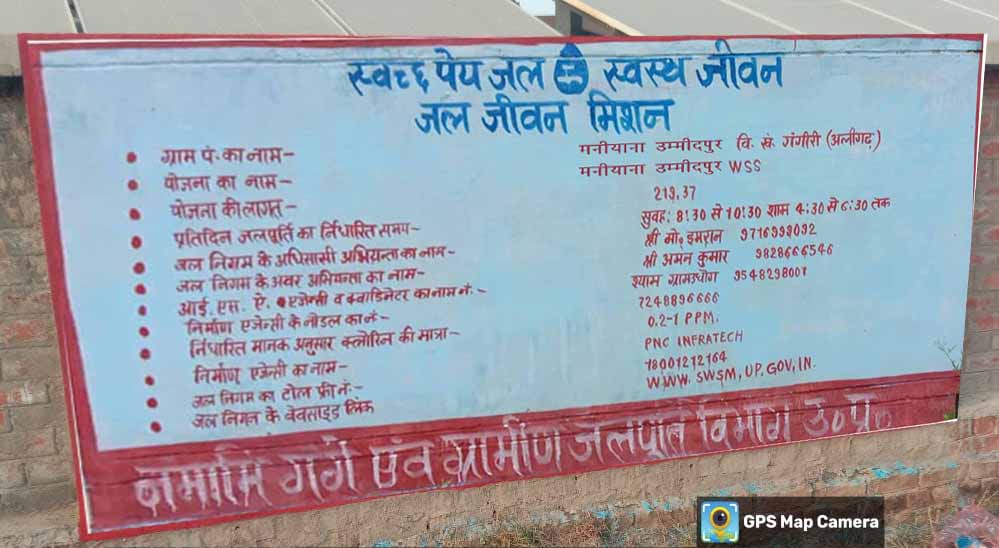 स्वच्छ पेय जल स्वस्थ जीवन
जल जीवन मिशन
ग्राम पं. का नाम- मनीयाना उम्मीदपुर वि. खं. गंगीरी (अलीगढ़)
योजना का नाम- मनीयाना उम्मीदपुर WSS
योजना की लागत- 219.37
प्रतिदिन जलपूर्ति का निर्धारित समय- सुवह: 8:30 से 10:30 शाम 4:30 से 6:30 तक
जल निगम के अधिसासी अभियन्ता का नाम- श्री मो० इमरान 9716998092
जल निगम के अवर अभियन्ता का नाम- श्री अमन कुमार 9828666546
आई. एस. ए. एजेन्सी व क्वाडिनेटर का नाम नं.- श्याम ग्रामउधोग 9548298001
निर्माण एजेन्सी के नोडल का नं- 7248896666
निर्धारित मानक अनुसार क्लोरिन की मात्रा- 0.2-1 PPM.
निर्माण एजेन्सी का नाम- PNC INFRATECH
जल निगम का टोल फ्री नं- 18001212164
जल निगम के वेवसाइड लिंक WWW. SWSM, UP. GOV, IN.
नमामि गंगे एंव ग्रामीण जलपूर्ति विभाग उ० प्र०
GPS Map Camera